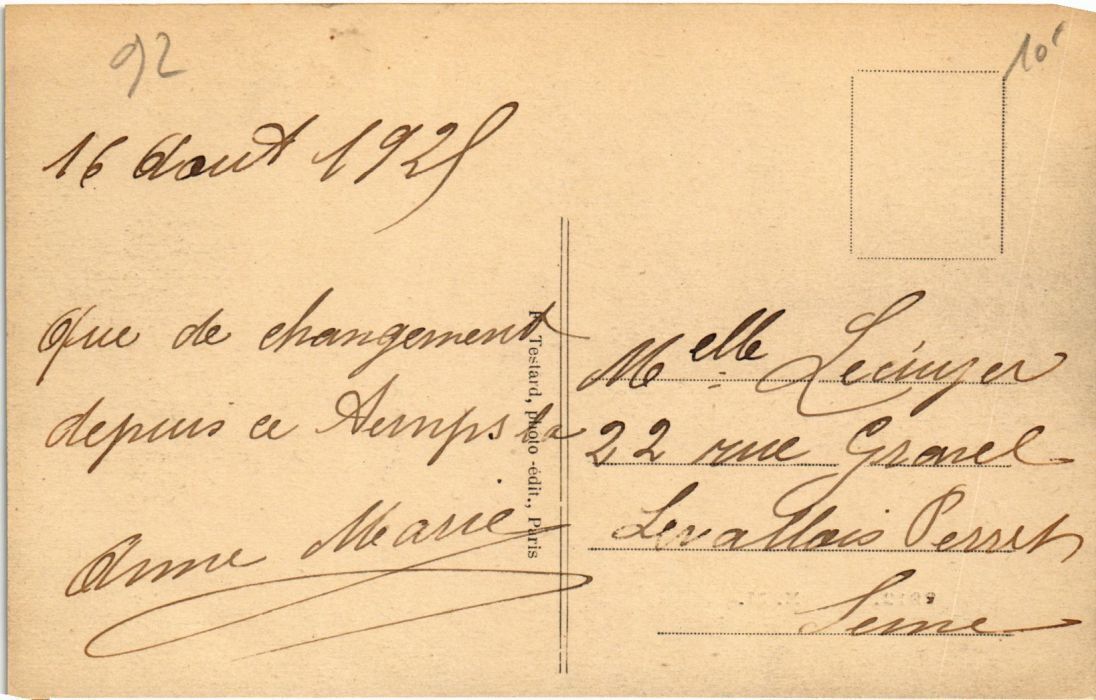 92
10
16 Aout 1925
Que de changement
depuis ce temps la
Anne Marie
F. Testard, photo-édit., Paris
Melle
22 rue Gravel
Levallois Perret
Seine